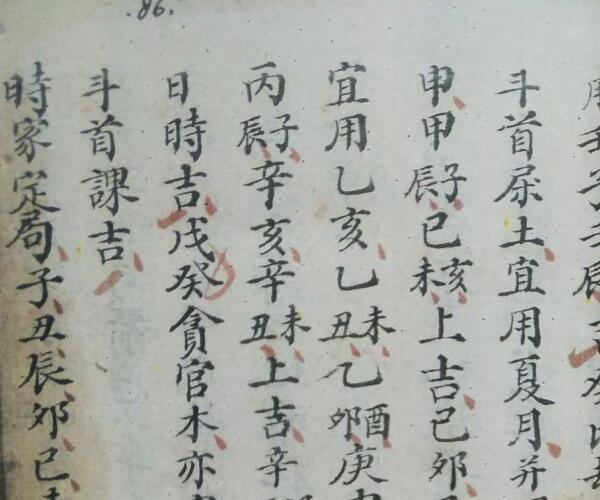 86.
斗首屎土宜用夏月并
甲甲子辰己亥未上吉己卯
宜用乙亥乙未丑乙酉卯庚
丙子辰辛亥辛未丑上吉辛
日時吉戊癸貪官木亦
斗首課吉
時家定局子丑辰卯巳